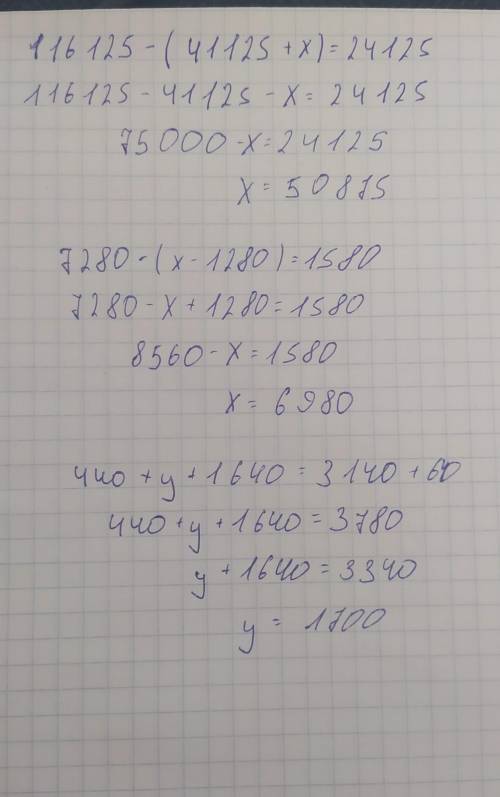 116125-(41125+x)=24125
116125-41125-x=24125
75000-x=24125
x=50875
7280-(x-1280)=1580
7280-x+1280=1580
8560-x=1580
x=6980
440+y+1640=3140+60
440+y+1640=3780
y+1640=3340
y=1700